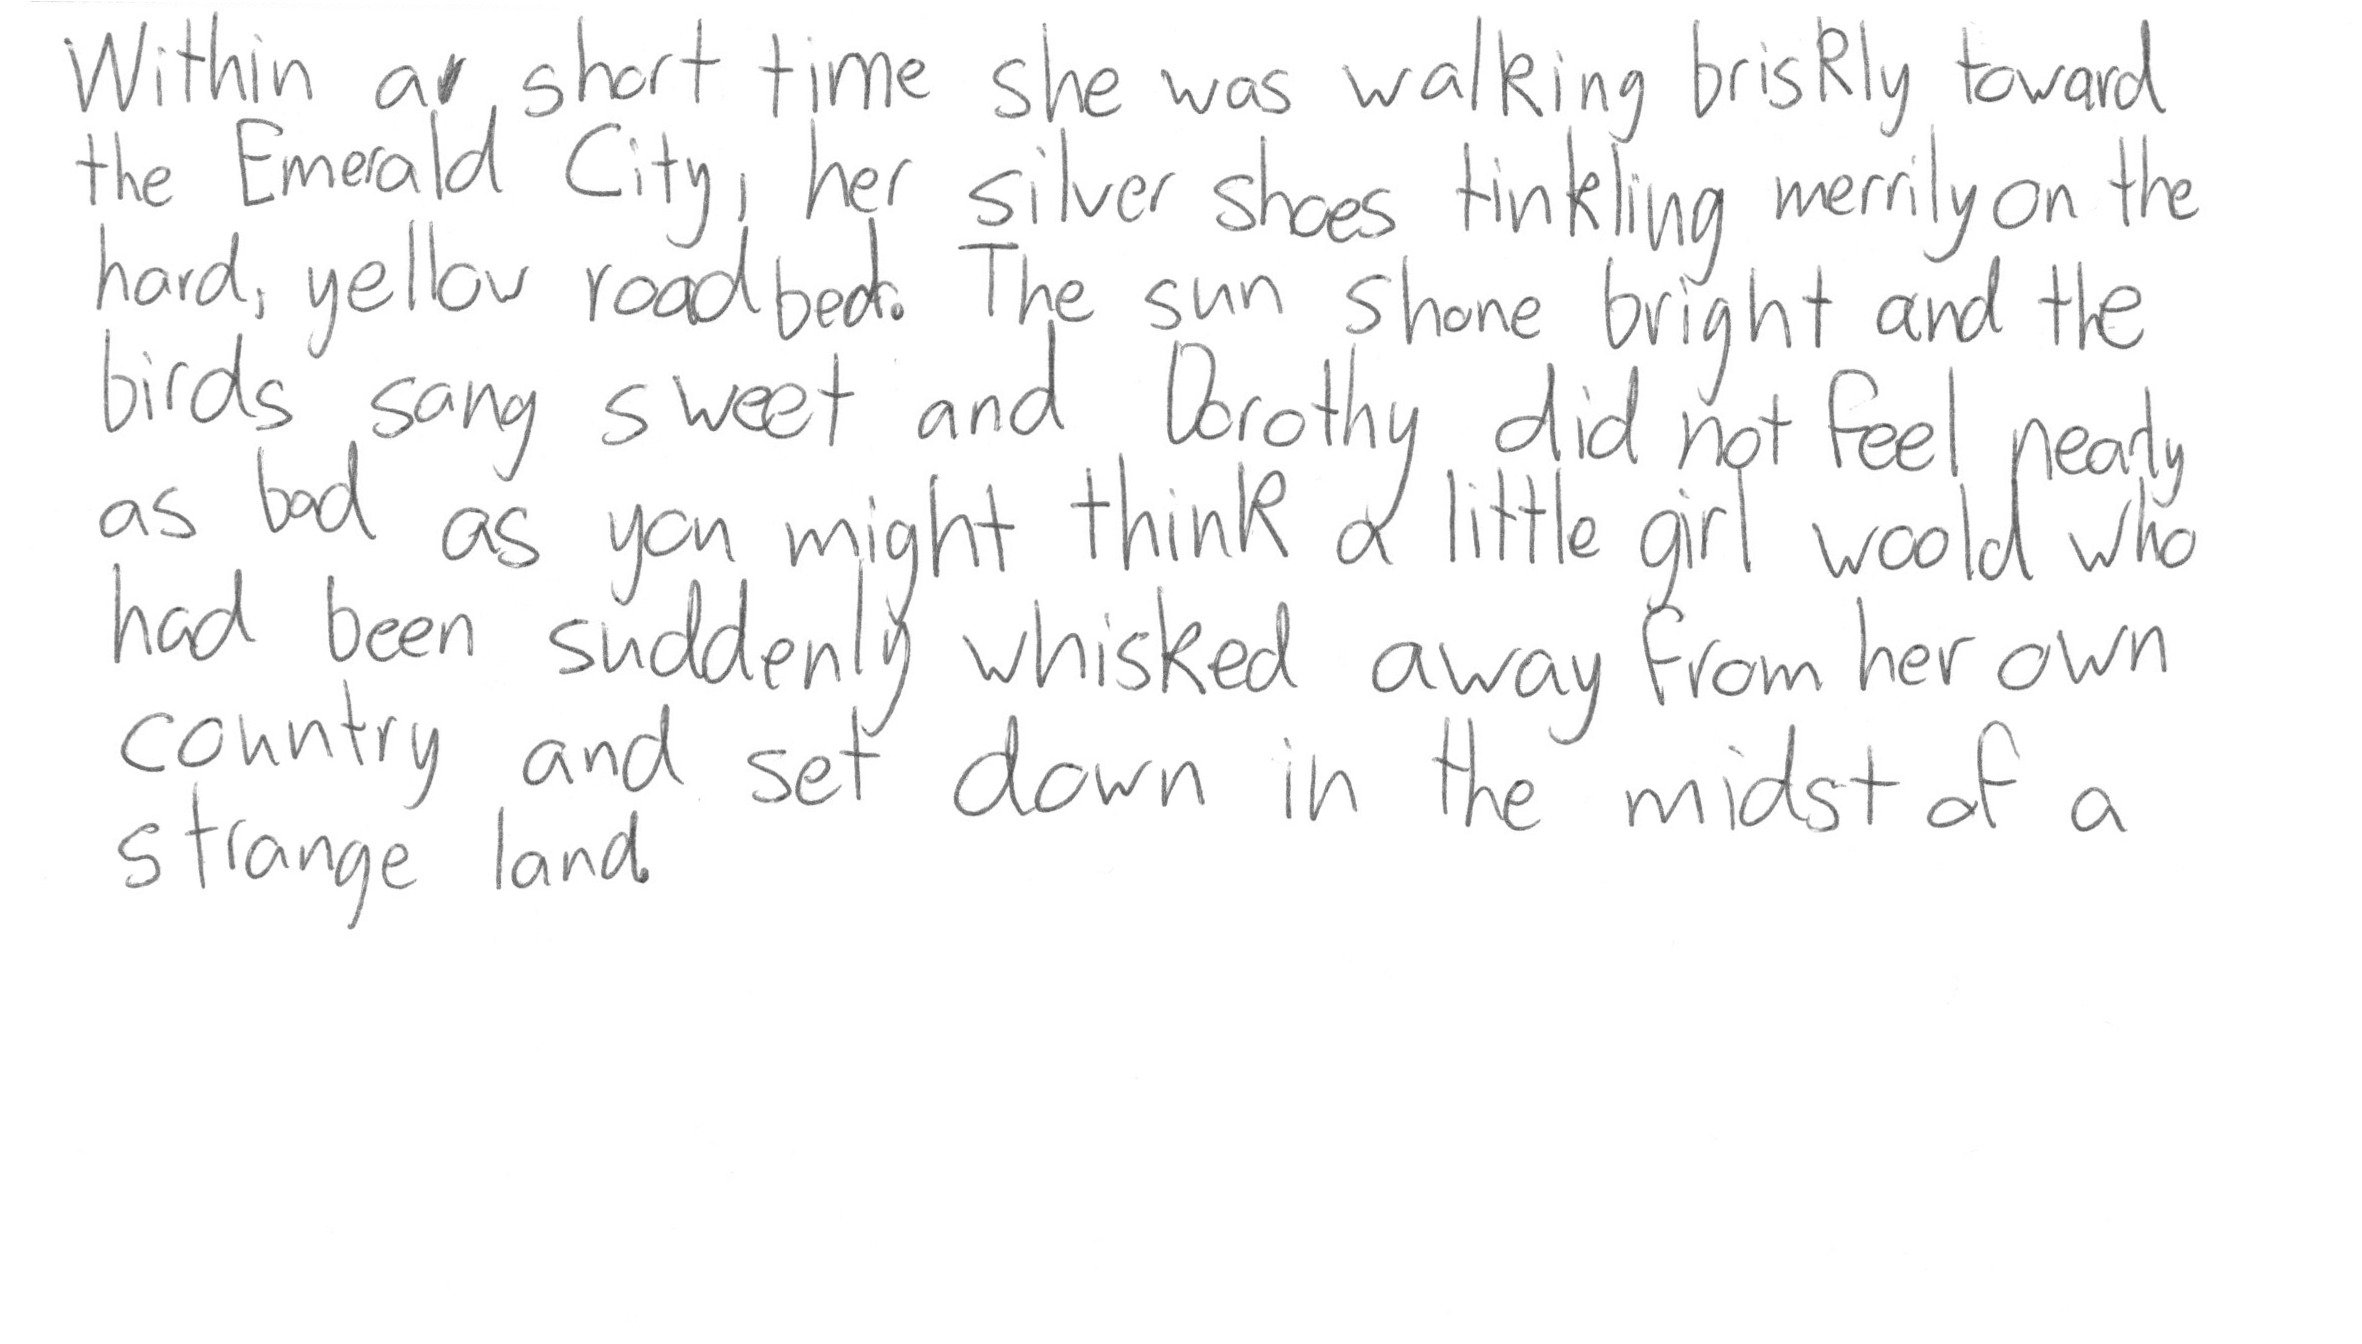 Within a short time she was walking briskly toward
the Emerald City, her silver shoes tinkling merrily on the
hard, yellow roadbed. The sun shone bright and the
birds sang sweet and Dorothy did not feel nearly
as bad as you might think a little girl woold who
had been suddenly whisked away from her own
country and set down in the midst of a
strange land.